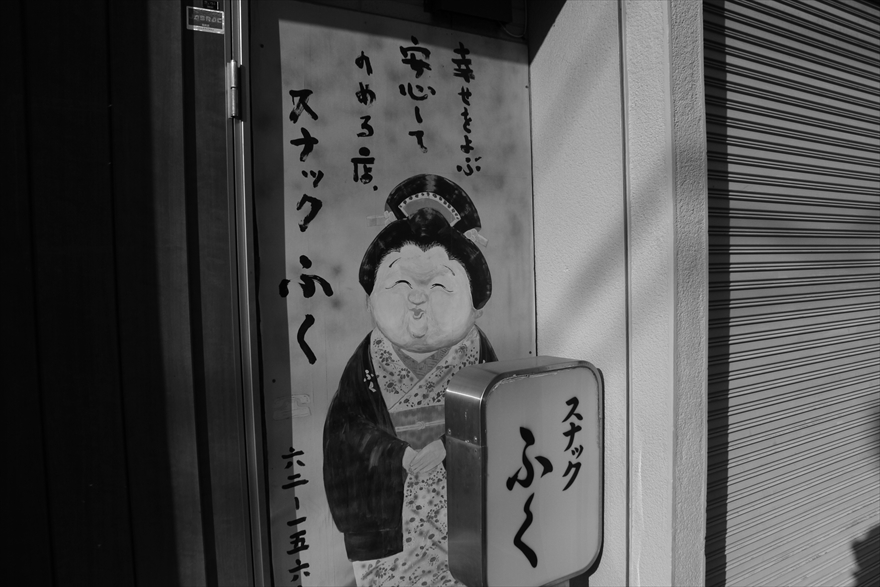 幸せをよぶ
安心して
のめる店、
スナック ふく
六二ー一五六
スナック
ふく